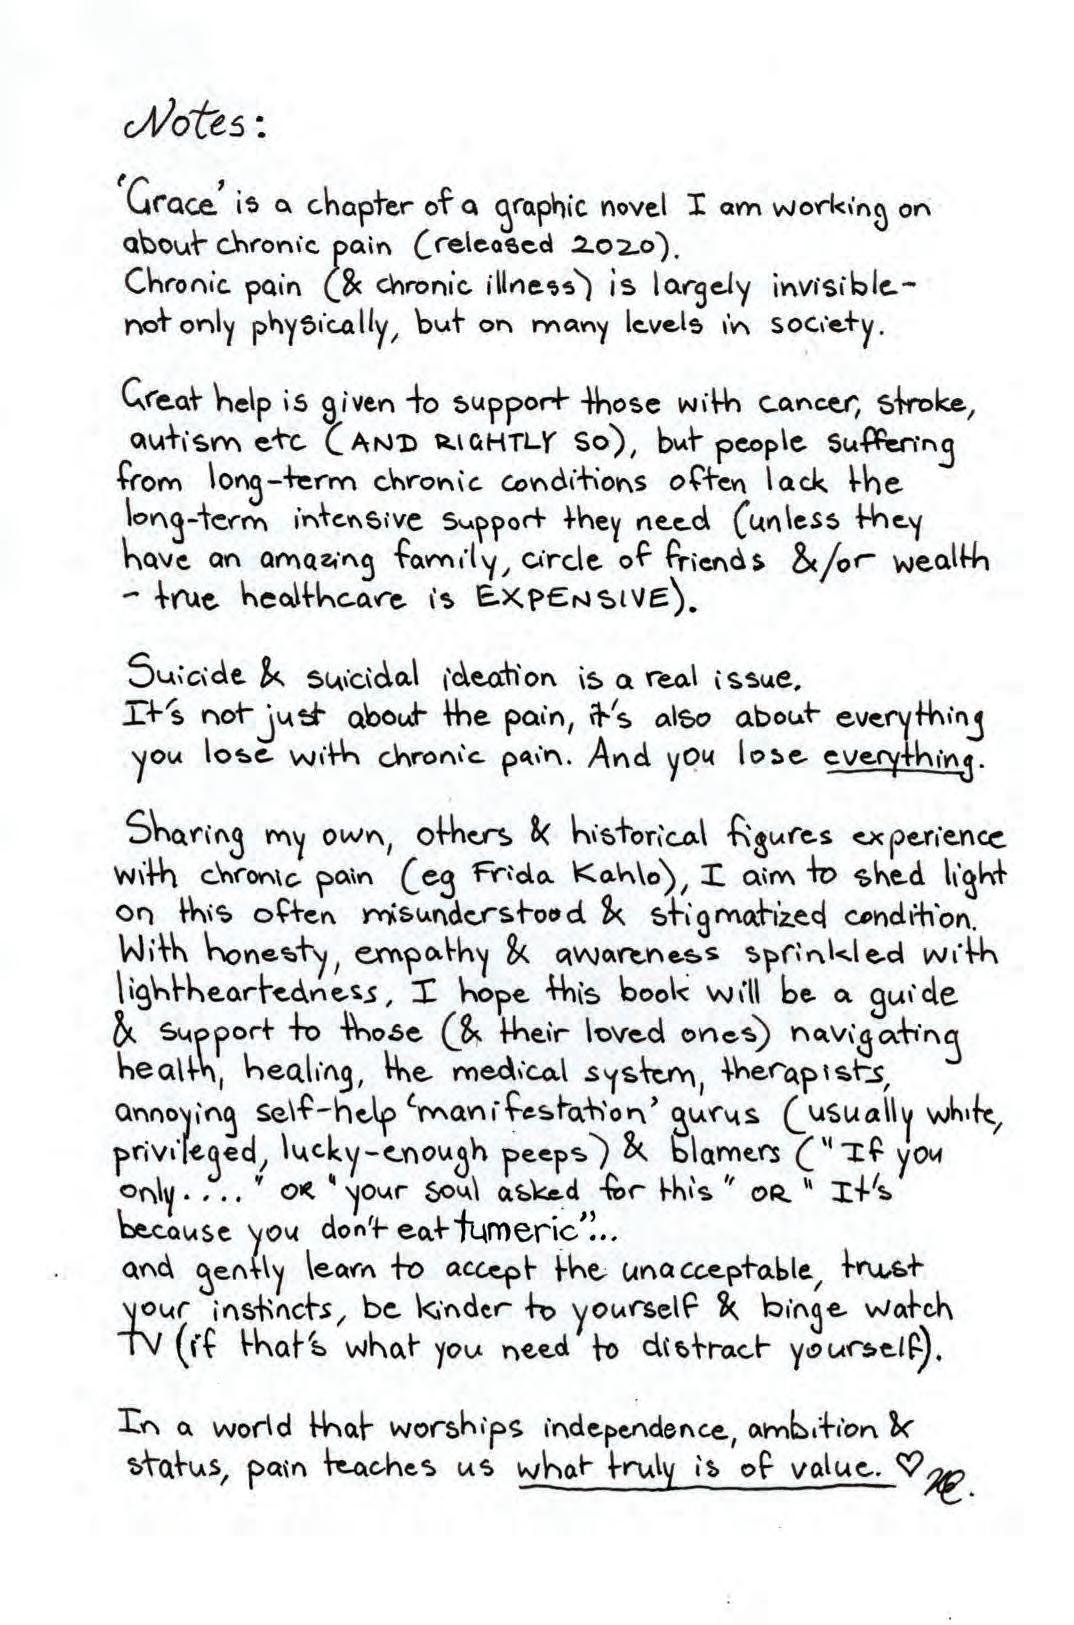 Notes:
'Grace' is a chapter of a graphic novel I am working on
about chronic pain (released 2020).
Chronic pain (& chronic illness) is largely invisible-
not only physically, but on many levels in society.
Great help is given to support those with cancer, stroke,
autism etc (AND RIGHTLY SO), but people suffering
from long-term chronic conditions often lack the
long-term intensive support they need (unless they
have an amazing family, circle of friends &/or wealth
- true healthcare is EXPENSIVE).
Suicide & suicidal ideation is a real issue.
It's not just about the pain, it's also about everything
you lose with chronic pain. And you lose everything.
Sharing my own, others & historical figures experience
with chronic pain (eg Frida Kahlo), I aim to shed light
on this often misunderstood & stigmatized condition.
With honesty, empathy & awareness sprinkled with
lightheartedness, I hope this book will be a guide
& support to those (& their loved ones) navigating
health, healing, the medical system, therapists,
annoying self-help 'manifestation' gurus (usually white,
privileged, lucky-enough peeps) & blamers ("If you
only...." OR "your soul asked for this" OR "It's
because you don't eat tumeric"...
and gently learn to accept the unacceptable, trust
your instincts, be kinder to yourself & binge watch
TV (if that's what you need to distract yourself).
In a world that worships independence, ambition &
status, pain teaches us what truly is of value. ♡